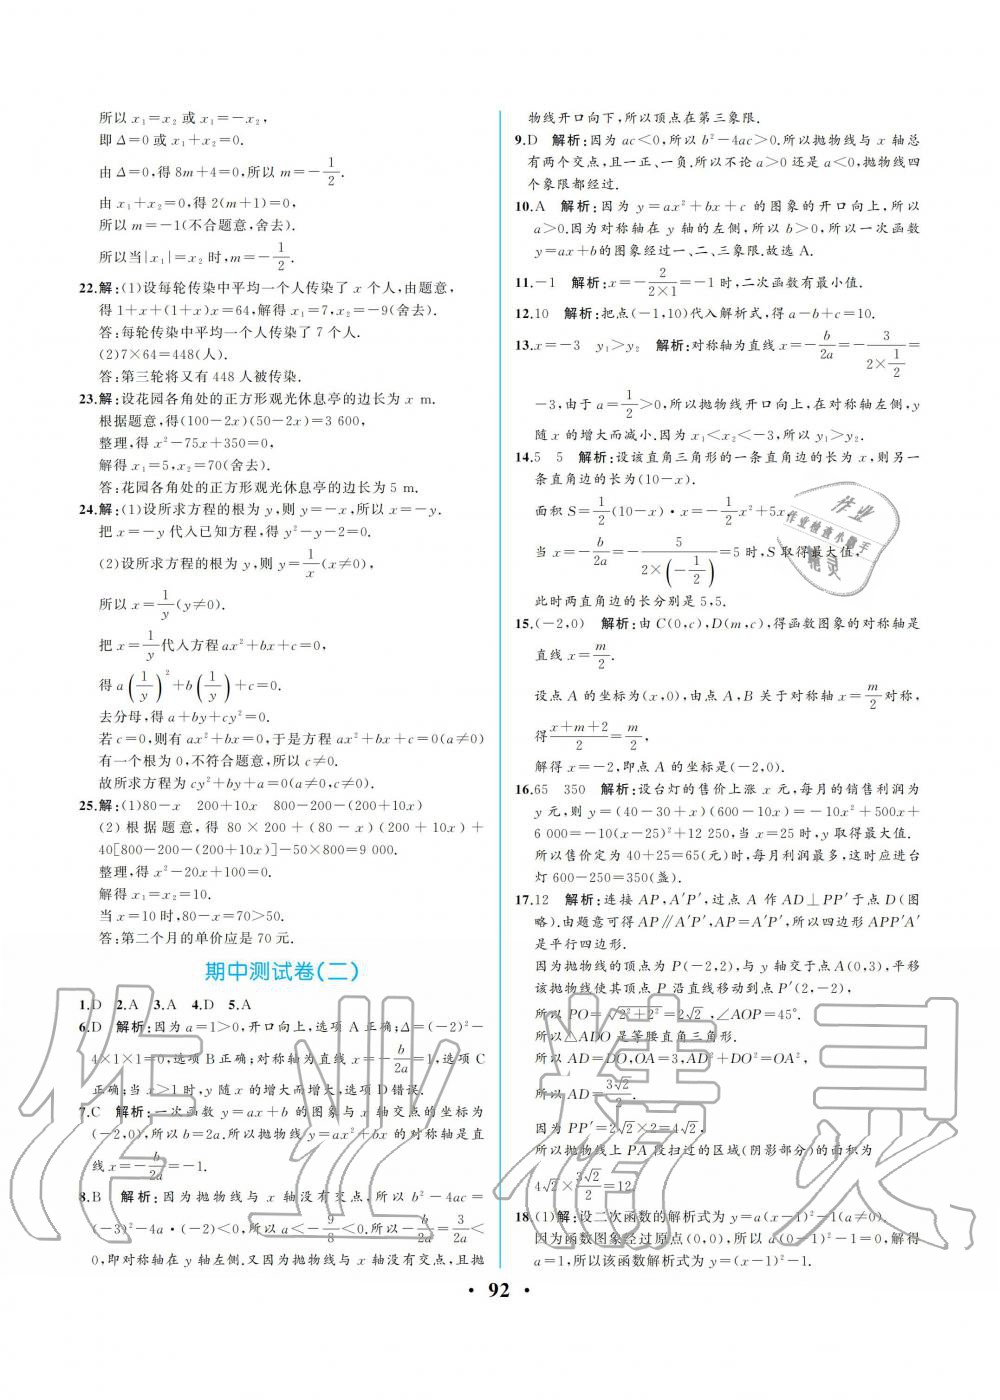 所以 x₁=x₂ 或 x₁=-x₂,
即 Δ=0 或 x₁+x₂=0.
由 Δ=0,得 8m+4=0,所以 m=-1/2.
由 x₁+x₂=0,得 2(m+1)=0,
所以 m=-1(不合题意,舍去).
所以当|x₁|=x₂ 时,m=-1/2.
22.解:(1)设每轮传染中平均一个人传染了 x 个人,由题意,
得 1+x+(1+x)x=64,解得 x₁=7,x₂=-9(舍去).
答:每轮传染中平均一个人传染了 7 个人.
(2)7×64=448(人).
答:第三轮将又有 448 人被传染.
23.解:设花园各角处的正方形观光休息亭的边长为 x m.
根据题意,得(100-2x)(50-2x)=3 600,
整理,得 x²-75x+350=0,
解得 x₁=5,x₂=70(舍去).
答:花园各角处的正方形观光休息亭的边长为 5 m.
24.解:(1)设所求方程的根为 y,则 y=-x,所以 x=-y.
把 x=-y 代入已知方程,得 y²-y-2=0.
(2)设所求方程的根为 y,则 y=1/x(x≠0),
所以 x=1/y(y≠0).
把 x=1/y代入方程 ax²+bx+c=0,
得 a(1/y)²+b(1/y)+c=0.
去分母,得 a+by+cy²=0.
若 c=0,则有 ax²+bx=0,于是方程 ax²+bx+c=0(a≠0)
有一个根为 0,不符合题意,所以 c≠0.
故所求方程为 cy²+by+a=0(a≠0,c≠0).
25.解:(1)80-x 200+10x 800-200-(200+10x)
(2)根据题意,得 80×200+(80-x)(200+10x)+
40[800-200-(200+10x)]-50×800=9 000.
整理,得 x²-20x+100=0.
解得 x₁=x₂=10.
当 x=10 时,80-x=70>50.
答:第二个月的单价应是 70 元.
期中测试卷(二)
1.D 2.A 3.A 4.D 5.A
6.D 解析:因为 a=1>0,开口向上,选项 A 正确;Δ=(-2)²-
4×1×1=0,选项 B 正确;对称轴为直线 x=-b/2a=1,选项 C
正确;当 x>1 时,y 随 x 的增大而增大,选项 D 错误.
7.C 解析:一次函数 y=ax+b 的图象与 x 轴交点的坐标为
(-2,0),所以 b=2a.所以抛物线 y=ax²+bx 的对称轴是直
线 x=-b/2a=-1.
8.B 解析:因为抛物线与 x 轴没有交点,所以 b²-4ac=
(-3)²-4a·(-2)<0,所以 a<-9/8<0,所以-b/2a=3/2a<
0,即对称轴在 y 轴左侧.又因为抛物线与 x 轴没有交点,且抛
物线开口向下,所以顶点在第三象限.
9.D 解析:因为 ac<0,所以 b²-4ac>0.所以抛物线与 x 轴总
有两个交点,且一正、一负.所以不论 a>0 还是 a<0,抛物线四
个象限都经过.
10.A 解析:因为 y=ax²+bx+c 的图象的开口向上,所以
a>0.因为对称轴在 y 轴的左侧,所以 b>0,所以一次函数
y=ax+b的图象经过一、二、三象限.故选 A.
11.-1 解析:x=-2/(2×1)=-1 时,二次函数有最小值.
12.10 解析:把点(-1,10)代入解析式,得 a-b+c=10.
13.x=-3 y₁>y₂ 解析:对称轴为直线 x=-b/2a=-3/(2×1/2)=
-3,由于 a=1/2>0,所以抛物线开口向上,在对称轴左侧,y
随 x 的增大而减小.因为 x₁<x₂<-3,所以 y₁>y₂.
14.5 5 解析:设该直角三角形的一条直角边的长为 x,则另一
条直角边的长为(10-x).
面积 S=1/2(10-x)·x=-1/2x²+5x,
当 x=-b/2a=-5/(2×(-1/2))=5 时,S 取得最大值,
此时两直角边的长分别是 5,5.
15.(-2,0) 解析:由 C(0,c),D(m,c),得函数图象的对称轴是
直线 x=m/2.
设点 A 的坐标为(x,0),由点 A,B 关于对称轴 x=m/2对称,
得(x+m+2)/2=m/2,
解得 x=-2,即点 A 的坐标是(-2,0).
16.65 350 解析:设台灯的售价上涨 x 元,每月的销售利润为
y 元,则 y=(40-30+x)(600-10x)=-10x²+500x+
6 000=-10(x-25)²+12 250,当 x=25 时,y 取得最大值.
所以售价定为 40+25=65(元)时,每月利润最多,这时应进台
灯 600-250=350(盏).
17.12 解析:连接 AP,A′P′,过点 A 作 AD⊥PP′于点 D(图
略).由题意可得 AP∥A′P′,AP=A′P′,所以四边形 APP′A′
是平行四边形.
因为抛物线的顶点为 P(-2,2),与 y 轴交于点 A(0,3),平移
该抛物线使其顶点 P 沿直线移动到点 P′(2,-2),
所以 PO=√(2²+2²)=2√2,∠AOP=45°.
所以△ADO 是等腰直角三角形.
所以 AD=DO,OA=3,AD²+DO²=OA²,
所以 AD=3√2/2.
因为 PP′=2√2×2=4√2,
所以抛物线上 PA 段扫过的区域(阴影部分)的面积为
4√2×3√2/2=12.
18.(1)解:设二次函数的解析式为 y=a(x-1)²-1(a≠0).
因为函数图象经过原点(0,0),所以 a(0-1)²-1=0,解得
a=1,所以该函数解析式为 y=(x-1)²-1.
· 92 ·
作业
作业检查小助手
精灵
作业精灵